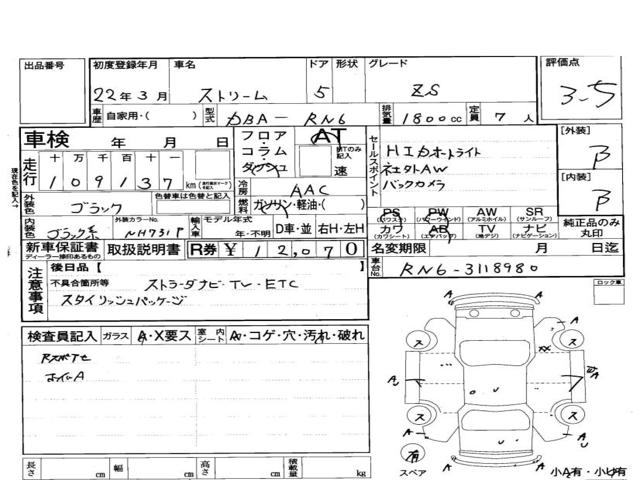 出品番号 初度登録年月 車名 ドア 形状 グレード 評価点
22年3月 ストリーム 5 ZS 3.5
車歴 自家用・( ) 型式 DBA-RN6 排気量 1800cc 定員 7人
車検 年 月 日
フロア コラム ダッシュ AT MTのみ記入 速
走行 十万千百十一
109137 km
冷房 AAC
燃料 ガソリン・軽油・( )
外装色 ブラック 色替車は色替と記入
内装色 ブラック系 外装カラーNo. NH731P 輸入車 モデル年式 年・不明 D車・並 右H・左H
新車保証書 ディーラー捺印あるもの 取扱説明書 R券 ¥12,070
セールスポイント
HIDオートライト
社外AW
バックカメラ
PS PW AW SR
(パワステ) (パワーウィンド) (アルミホイル) (サンルーフ)
カワ AB TV ナビ
(カワシート) (エアバッグ) (地デジ) (ナビゲーション)
純正品のみ丸印
名変期限 月 日迄
車台No. RN6-3118980
[外装] B
[内装] B
現在のメーター
注意事項
後日品 [ ]
不具合箇所等 ストラーダナビ-TV-ETC
スタイリッシュパッケージ
検査員記入 ガラス A・X要ス 室内シート A・コゲ・穴・汚れ・破れ
ホイルA
ロック車
ス ス ス ス
A A A A A A A
U U U
XX
有
スペア
小A有・小U有
長さ cm 幅 cm 高さ cm 積載量 kg